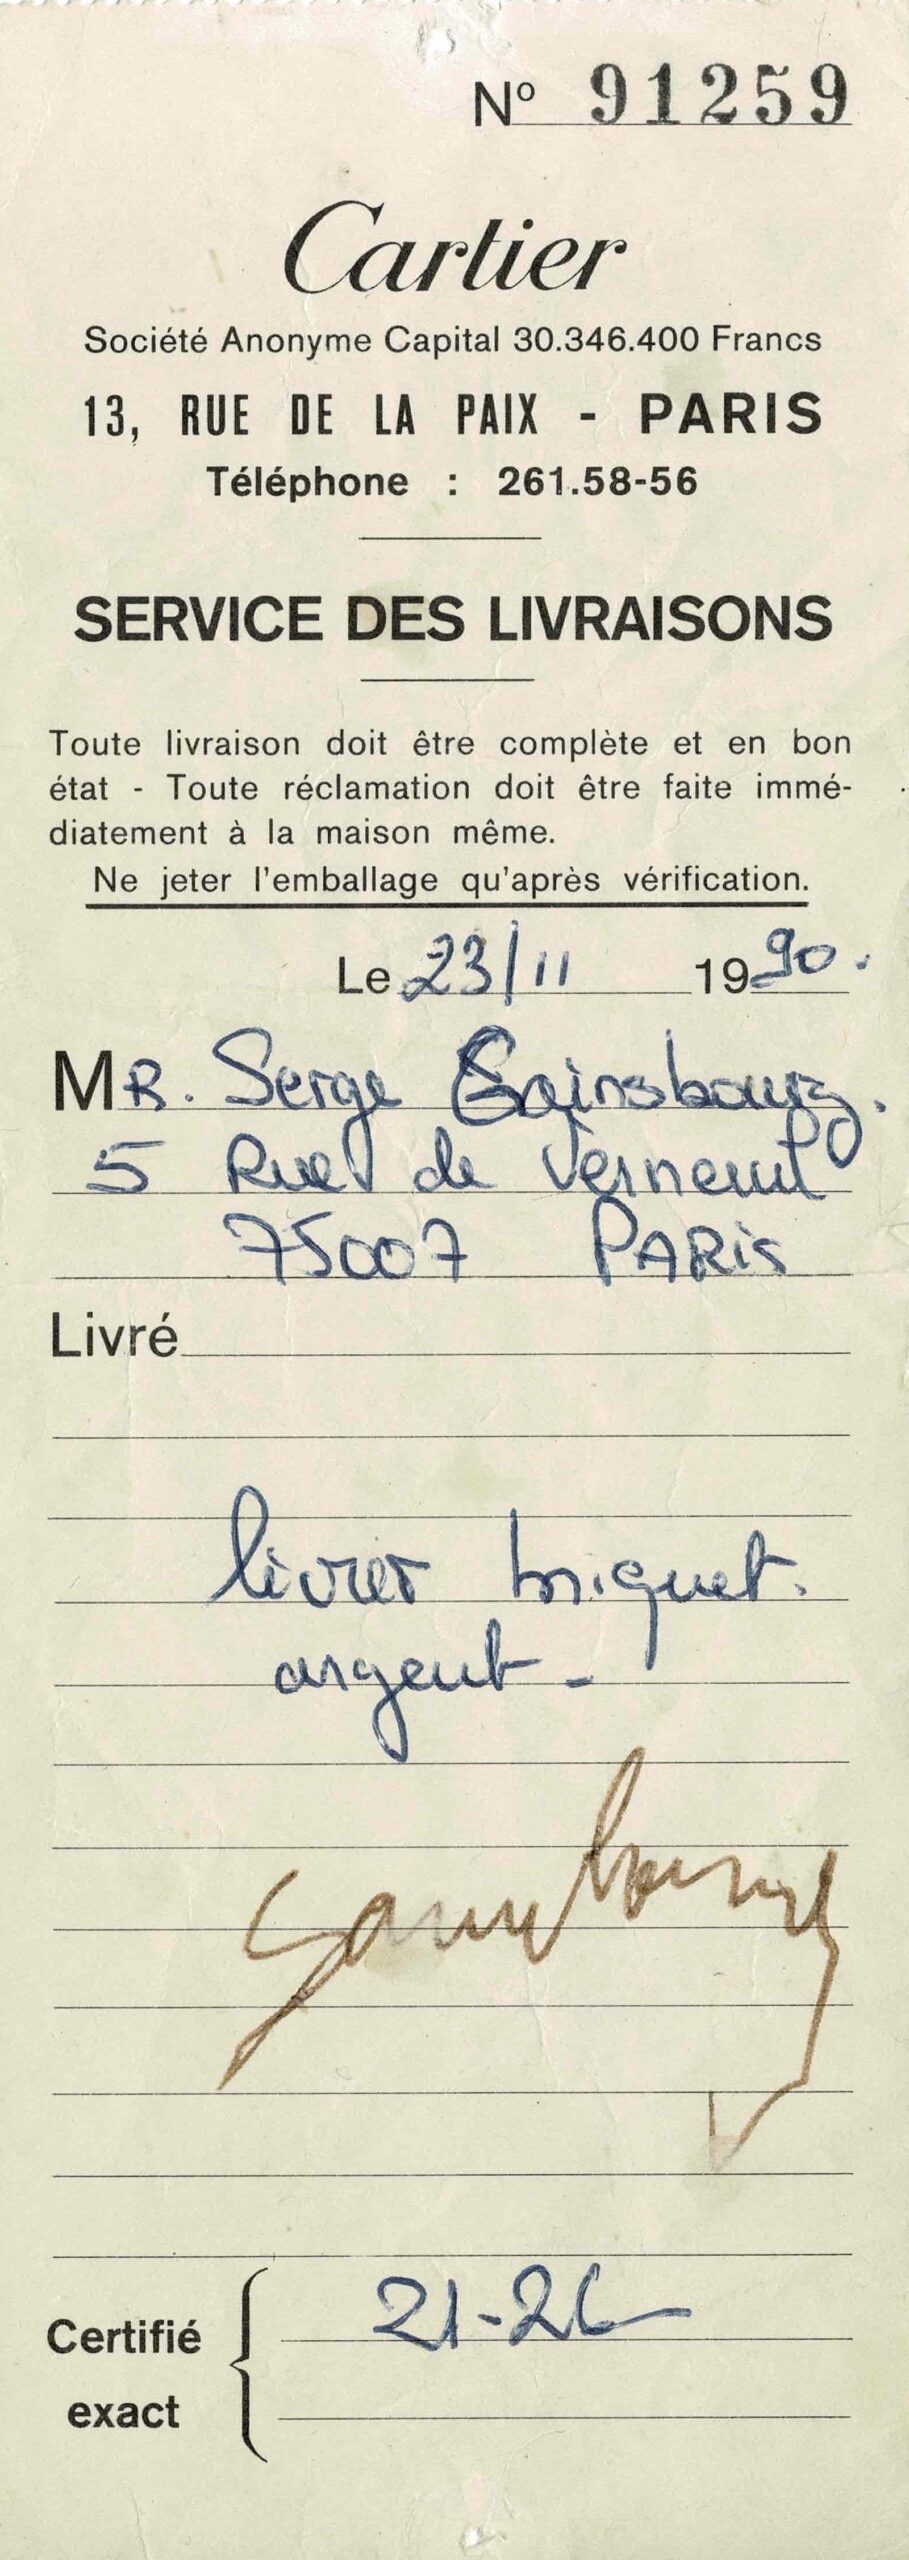 Nº 91259
Cartier
Société Anonyme Capital 30.346.400 Francs
13, RUE DE LA PAIX - PARIS
Téléphone : 261.58-56
SERVICE DES LIVRAISONS
Toute livraison doit être complète et en bon
état - Toute réclamation doit être faite immé-
diatement à la maison même.
Ne jeter l'emballage qu'après vérification.
Le 23/11 1990.
MR. Serge Gainsbourg.
5 Rue de Verneuil
75007 PARIS
Livré
livrer briquet.
argent -
Gainsbourg
Certifié
exact
21-26